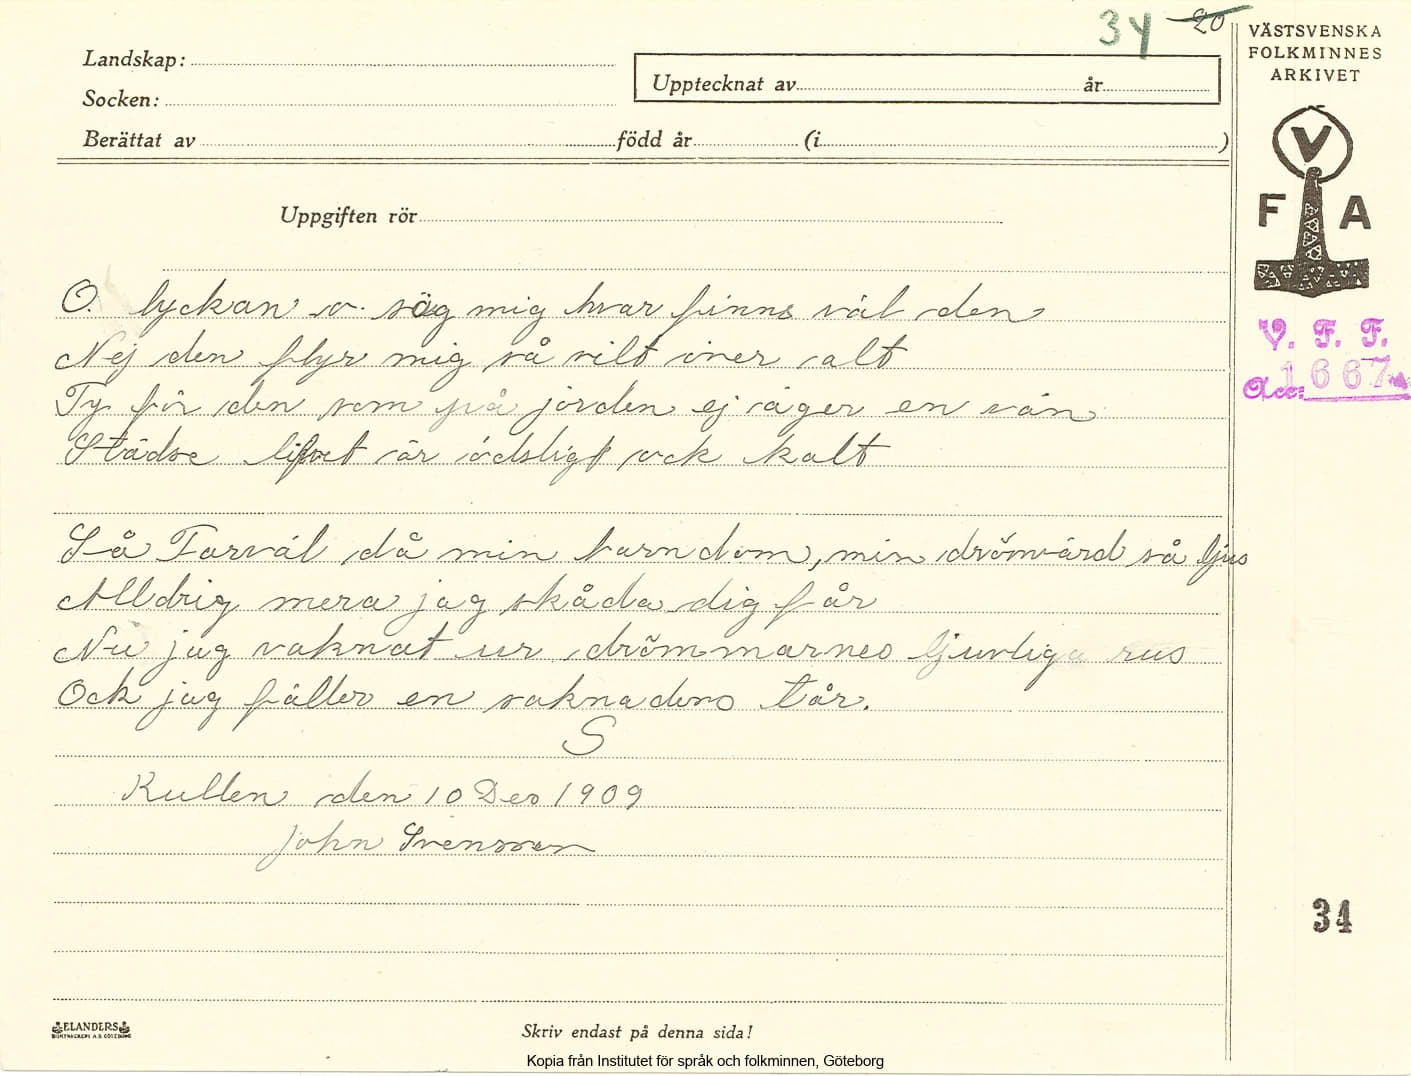 34 20
Landskap:
Socken:
Upptecknat av år
Berättat av född år (i )
VÄSTSVENSKA
FOLKMINNES
ARKIVET
V
F A
Uppgiften rör
O. lyckan o. säg mig hvar finns väl den
Nej den flyr mig så vilt över alt
Ty för den som på jorden ej äger en vän
Städse lifvet är ödsligt ock kalt
V. F. F.
Acc: 1667
Så Farväl då min barndom, min drömvärd så ljus
Alldrig mera jag skåda dig får
Nu jag vaknat ur drömmarnes ljuvliga rus
Ock jag fäller en saknadens tår.
S
Kullen den 10 Des 1909
John Svensson
34
ELANDERS
BOKTRYCKERI A.B. GÖTEBORG
Skriv endast på denna sida!
Kopia från Institutet för språk och folkminnen, Göteborg